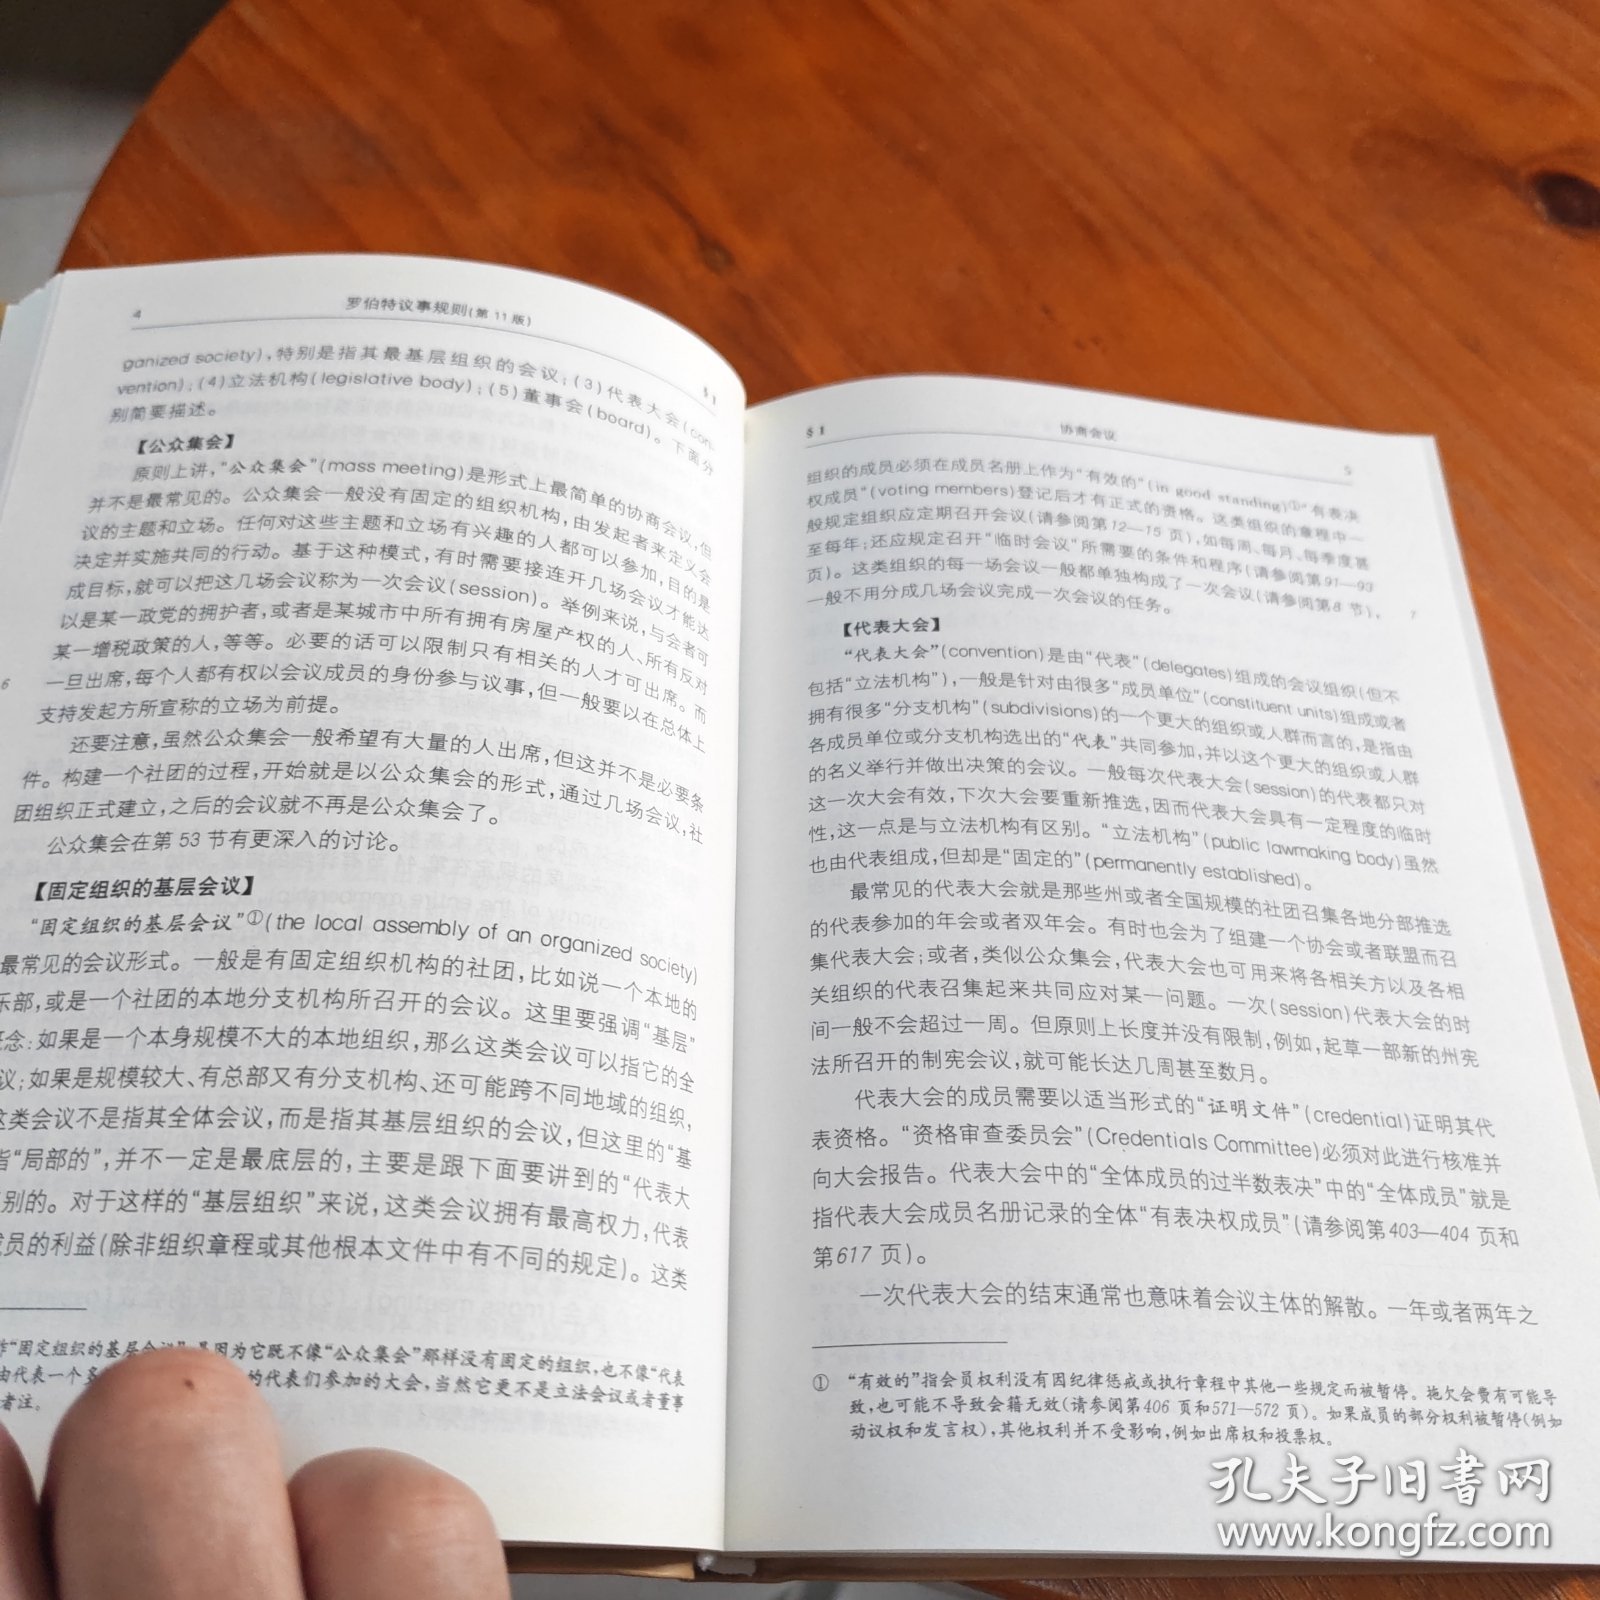 4
罗伯特议事规则(第 11 版)
§ 1
ganized society),特别是指其最基层组织的会议;(3)代表大会(con-
vention);(4)立法机构(legislative body);(5)董事会(board)。下面分
别简要描述。
【公众集会】
原则上讲,“公众集会”(mass meeting)是形式上最简单的协商会议,但
并不是最常见的。公众集会一般没有固定的组织机构,由发起者来定义会
议的主题和立场。任何对这些主题和立场有兴趣的人都可以参加,目的是
决定并实施共同的行动。基于这种模式,有时需要接连开几场会议才能达
成目标,就可以把这几场会议称为一次会议(session)。举例来说,与会者可
以是某一政党的拥护者,或者是某城市中所有拥有房屋产权的人、所有反对
某一增税政策的人,等等。必要的话可以限制只有相关的人才可出席。而
一旦出席,每个人都有权以会议成员的身份参与议事,但一般要以在总体上
6
支持发起方所宣称的立场为前提。
还要注意,虽然公众集会一般希望有大量的人出席,但这并不是必要条
件。构建一个社团的过程,开始就是以公众集会的形式,通过几场会议,社
团组织正式建立,之后的会议就不再是公众集会了。
公众集会在第 53 节有更深入的讨论。
【固定组织的基层会议】
“固定组织的基层会议”①(the local assembly of an organized society)
最常见的会议形式。一般是有固定组织机构的社团,比如说一个本地的
乐部,或是一个社团的本地分支机构所召开的会议。这里要强调“基层”
念:如果是一个本身规模不大的本地组织,那么这类会议可以指它的全
议;如果是规模较大、有总部又有分支机构、还可能跨不同地域的组织,
这类会议不是指其全体会议,而是指其基层组织的会议,但这里的“基
指“局部的”,并不一定是最底层的,主要是跟下面要讲到的“代表大
别的。对于这样的“基层组织”来说,这类会议拥有最高权力,代表
成员的利益(除非组织章程或其他根本文件中有不同的规定)。这类
“固定组织的基层会议”是因为它既不像“公众集会”那样没有固定的组织,也不像“代表
由代表一个多的代表们参加的大会,当然它更不是立法会议或者董事
者注。
§ 1
协商会议
5
组织的成员必须在成员名册上作为“有效的”(in good standing)①“有表决
权成员”(voting members)登记后才有正式的资格。这类组织的章程中一
般规定组织应定期召开会议(请参阅第12—15 页),如每周、每月、每季度甚
至每年;还应规定召开“临时会议”所需要的条件和程序(请参阅第91—93
页)。这类组织的每一场会议一般都单独构成了一次会议(请参阅第8 节),
一般不用分成几场会议完成一次会议的任务。
7
【代表大会】
“代表大会”(convention)是由“代表”(delegates)组成的会议组织(但不
包括“立法机构”),一般是针对由很多“成员单位”(constituent units)组成或者
拥有很多“分支机构”(subdivisions)的一个更大的组织或人群而言的,是指由
各成员单位或分支机构选出的“代表”共同参加,并以这个更大的组织或人群
的名义举行并做出决策的会议。一般每次代表大会(session)的代表都只对
这一次大会有效,下次大会要重新推选,因而代表大会具有一定程度的临时
性,这一点是与立法机构有区别。“立法机构”(public lawmaking body)虽然
也由代表组成,但却是“固定的”(permanently established)。
最常见的代表大会就是那些州或者全国规模的社团召集各地分部推选
的代表参加的年会或者双年会。有时也会为了组建一个协会或者联盟而召
集代表大会;或者,类似公众集会,代表大会也可用来将各相关方以及各相
关组织的代表召集起来共同应对某一问题。一次(session)代表大会的时
间一般不会超过一周。但原则上长度并没有限制,例如,起草一部新的州宪
法所召开的制宪会议,就可能长达几周甚至数月。
代表大会的成员需要以适当形式的“证明文件”(credential)证明其代
表资格。“资格审查委员会”(Credentials Committee)必须对此进行核准并
向大会报告。代表大会中的“全体成员的过半数表决”中的“全体成员”就是
指代表大会成员名册记录的全体“有表决权成员”(请参阅第403—404 页和
第617 页)。
一次代表大会的结束通常也意味着会议主体的解散。一年或者两年之
① “有效的”指会员权利没有因纪律惩戒或执行章程中其他一些规定而被暂停。拖欠会费有可能导
致,也可能不导致会籍无效(请参阅第406 页和571—572 页)。如果成员的部分权利被暂停(例如
动议权和发言权),其他权利并不受影响,例如出席权和投票权。
孔夫子旧书网
www.kongfz.com